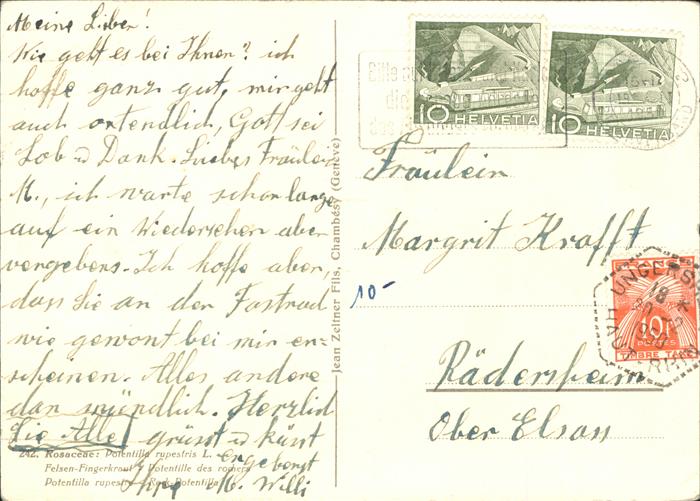 Meine Liebe!
Wie geht es bei Ihnen? ich
hoffe ganz gut, mir geht
auch ortendlich, Gott sei
Lob u Dank. Liebes Fräulein
M., ich warte schon lange
auf ein Wiedersehen aber
vergebens. Ich hoffe aber,
dass Sie an der Fastnad
wie gewont bei mir er-
scheinen. Alles andere
dan mündlich. Herzlich
Sie Alle grüsst u küsst
242. Rosaceae: Potentilla rupestris L.
Felsen-Fingerkraut Potentille des rochers
Potentilla rupestre Rock-Potentilla
Ihre M. Willi
Jean Zeltner Fils, Chambésy (Genève)
10 HELVETIA
10 HELVETIA
Fräulein
Margrit Krafft
10-
Rädersheim
Ober Elsass
UNGERSH
FRANCE
40F
POSTES
TIMBRE TAXE